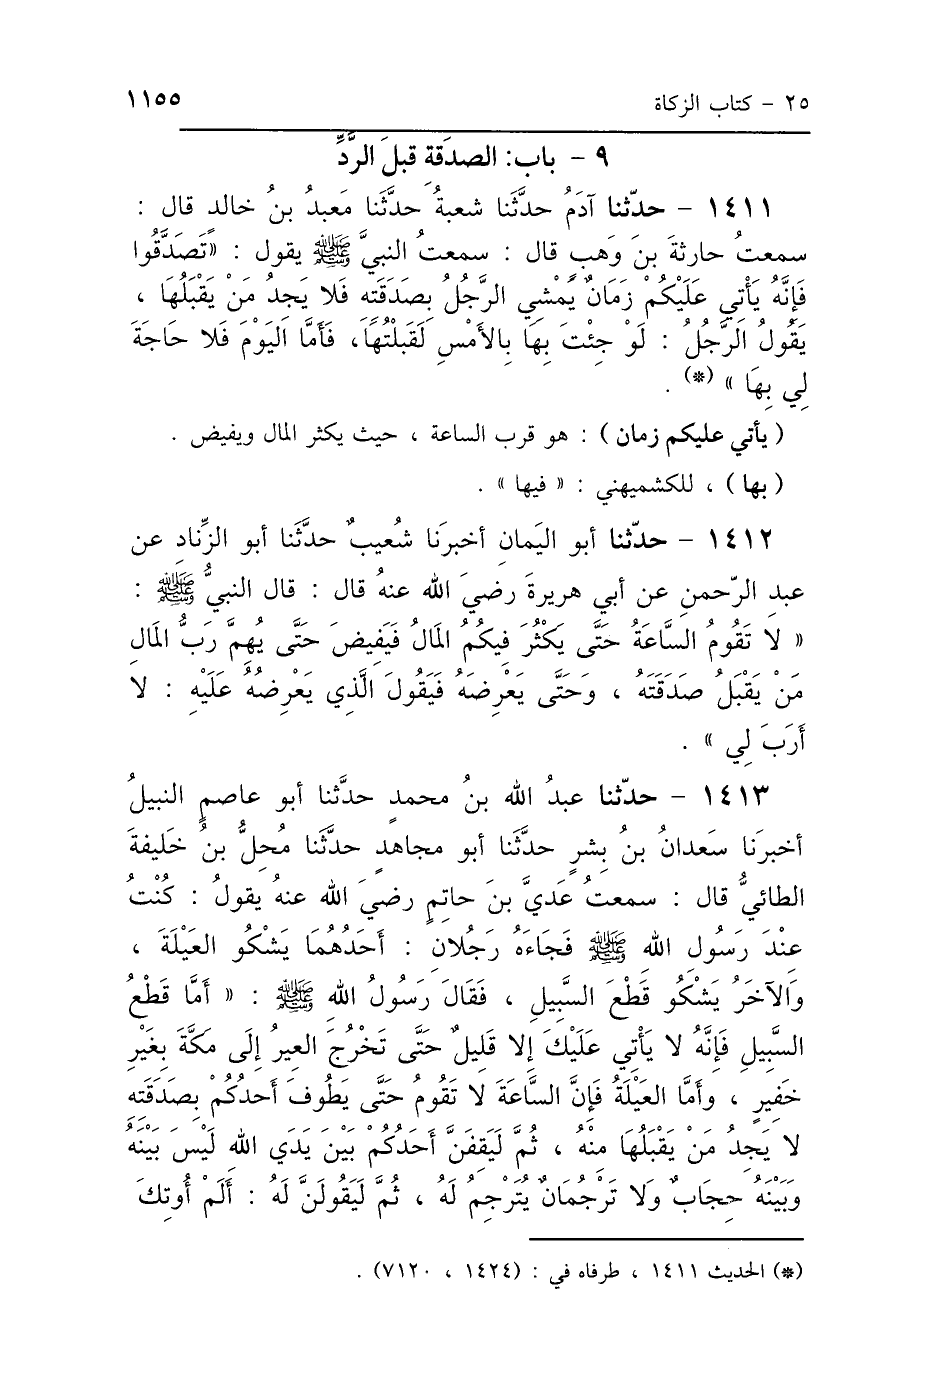 ٢٥ - كتاب الزكاة ١١٥٥
٩ - باب: الصدَقة قبلَ الردِّ
١٤١١ - حدّثنا آدَمُ حدَّثَنا شعبةُ حدَّثَنا مَعبدُ بنُ خالدٍ قال :
سمعتُ حارثةَ بنَ وَهبٍ قال : سمعتُ النبيَّ ﷺ يقول : «تَصَدَّقُوا
فَإِنَّهُ يَأْتِي عَلَيْكُمْ زَمَانٌ يَمْشِي الرَّجُلُ بِصَدَقَتِهِ فَلا يَجِدُ مَنْ يَقْبَلُهَا ،
يَقُولُ الرَّجُلُ : لَوْ جِئْتَ بِهَا بِالأَمْسِ لَقَبِلْتُهَا، فَأَمَّا اليَوْمَ فَلا حَاجَةَ
لِي بِهَا » (*) .
( يأتي عليكم زمان ) : هو قرب الساعة ، حيث يكثر المال ويفيض .
( بها ) ، للكشميهني : « فيها » .
١٤١٢ - حدّثنا أبو اليَمانِ أخبرَنا شُعيبٌ حدَّثَنا أبو الزِّنادِ عن
عبد الرّحمنِ عن أبي هريرةَ رضيَ الله عنهُ قال : قال النبيُّ ﷺ :
« لا تَقُومُ السَّاعَةُ حَتَّى يَكْثُرَ فِيكُمُ المَالُ فَيَفِيضَ حَتَّى يُهِمَّ رَبُّ المَالِ
مَنْ يَقْبَلُ صَدَقَتَهُ ، وَحَتَّى يَعْرِضَهُ فَيَقُولَ الَّذِي يَعْرِضُهُ عَلَيْهِ : لا
أَرَبَ لِي » .
١٤١٣ - حدّثنا عبدُ الله بنُ محمدٍ حدَّثنا أبو عاصمٍ النبيلُ
أخبرَنا سَعدانُ بنُ بِشرٍ حدَّثَنا أبو مجاهدٍ حدَّثَنا مُحِلُّ بنُ خَليفةَ
الطائيُّ قال : سمعتُ عَديَّ بنَ حاتمٍ رضيَ الله عنهُ يقولُ : كُنْتُ
عِنْدَ رَسُولِ الله ﷺ فَجَاءَهُ رَجُلانِ : أَحَدُهُمَا يَشْكُو العَيْلَةَ ،
وَالآخَرُ يَشْكُو قَطْعَ السَّبِيلِ ، فَقَالَ رَسُولُ الله ﷺ : « أَمَّا قَطْعُ
السَّبِيلِ فَإِنَّهُ لا يَأْتِي عَلَيْكَ إِلا قَلِيلٌ حَتَّى تَخْرُجَ العِيرُ إِلَى مَكَّةَ بِغَيْرِ
خَفِيرٍ ، وأَمَّا العَيْلَةُ فَإِنَّ السَّاعَةَ لا تَقُومُ حَتَّى يَطُوفَ أَحَدُكُمْ بِصَدَقَتِهِ
لا يَجِدُ مَنْ يَقْبَلُهَا مِنْهُ ، ثُمَّ لَيَقِفَنَّ أَحَدُكُمْ بَيْنَ يَدَيِ الله لَيْسَ بَيْنَهُ
وَبَيْنَهُ حِجَابٌ وَلا تَرْجُمَانٌ يُتَرْجِمُ لَهُ ، ثُمَّ لَيَقُولَنَّ لَهُ : أَلَمْ أُوتِكَ
(*) الحديث ١٤١١ ، طرفاه في : (١٤٢٤ ، ٧١٢٠) .